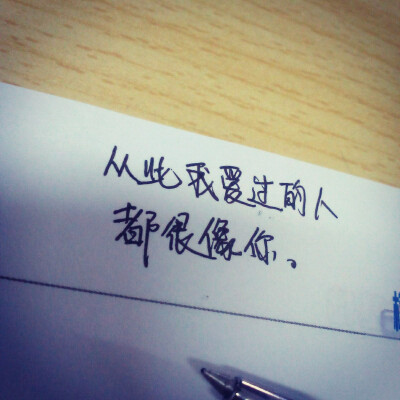 从此我爱过的人
都很像你。